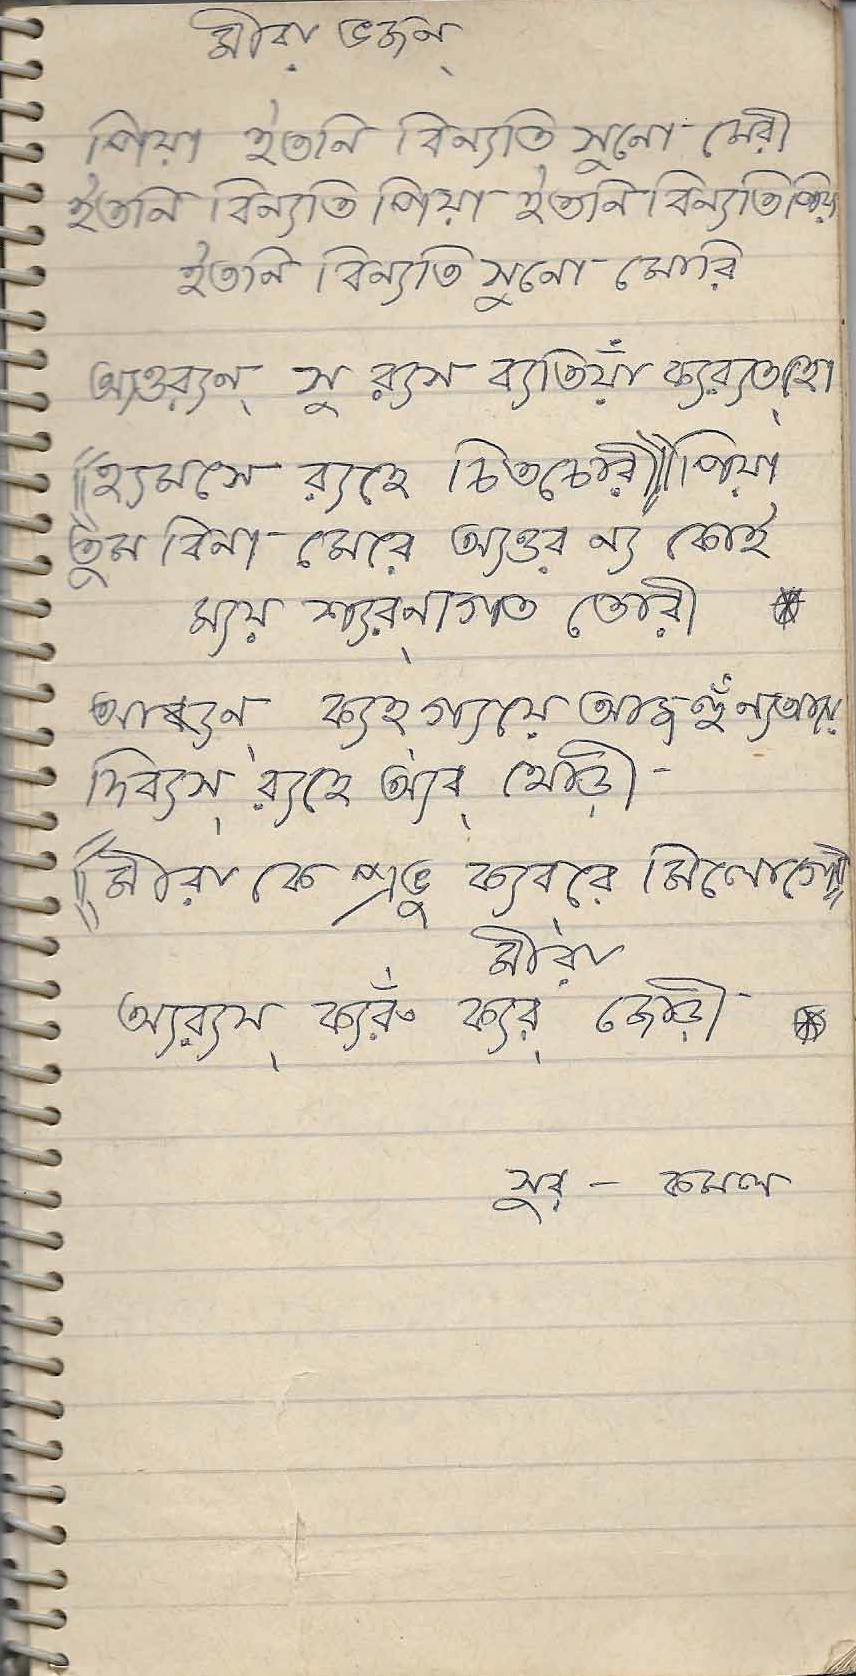 মীরা ভজন্
পিয়া ইতনি বিন্যতি সুনো মেরী
ইতনি বিন্যতি পিয়া ইতনি বিন্যতি পিয়া
ইতনি বিন্যতি সুনো মোরি
অ্যওর‍্যন্ সু র‍্যস ব্যতিয়াঁ ক্যর‍্যত্ হো
((হ্যমসে র‍্যহে চিতচোরী)) পিয়া
তুম বিনা মেরে অ্যওর ন্য কোই
ম্যয় শ্যরণাগত তোরী
আব্যন্ ক্যহ্ গ্যয়ে আজহুঁ ন্যআয়ে
দিব্যস্ র‍্যহে অ্যব্ থোড়ী
((মীরা কে প্রভু ক্যবরে মিলোগে))
মীরা
অ্যর‍্যয্ ক্যরুঁ ক্যর্ জোড়ী
সুর – কমল